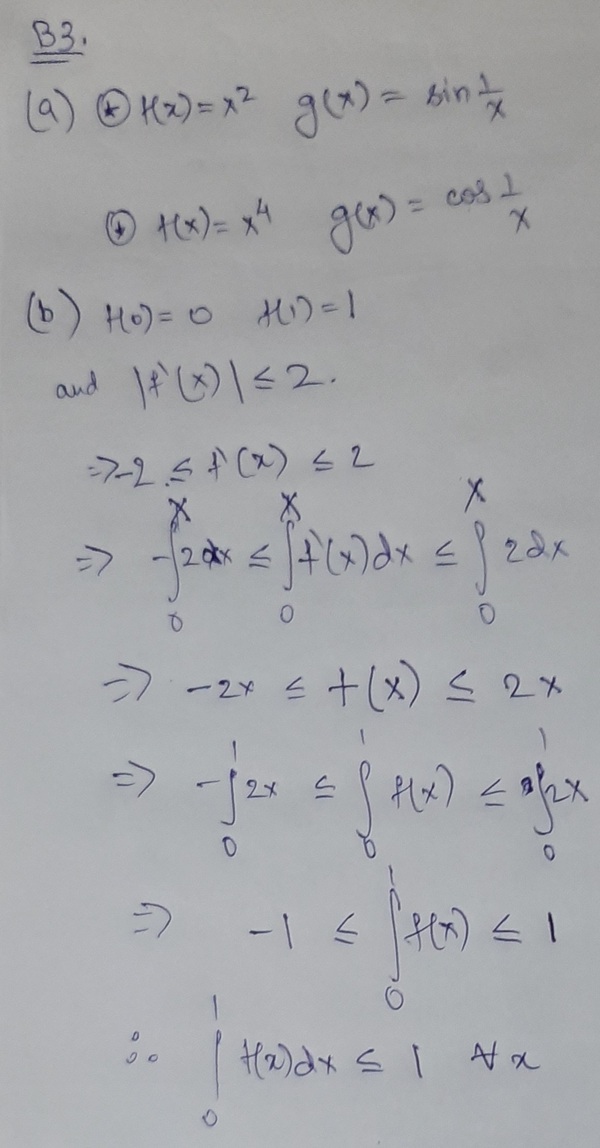 B3.
(a) ⊛ f(x) = x² g(x) = sin 1/x
⊛ f(x) = x⁴ g(x) = cos 1/x
(b) f(0) = 0 f(1) = 1
and |f'(x)| ≤ 2.
⇒ -2 ≤ f'(x) ≤ 2
⇒ -∫₀ˣ 2dx ≤ ∫₀ˣ f'(x)dx ≤ ∫₀ˣ 2dx
⇒ -2x ≤ f(x) ≤ 2x
⇒ -∫₀¹ 2x ≤ ∫₀¹ f(x) ≤ ∫₀¹ 2x
⇒ -1 ≤ ∫₀¹ f(x) ≤ 1
∴ ∫₀¹ f(x)dx ≤ 1 ∀ x